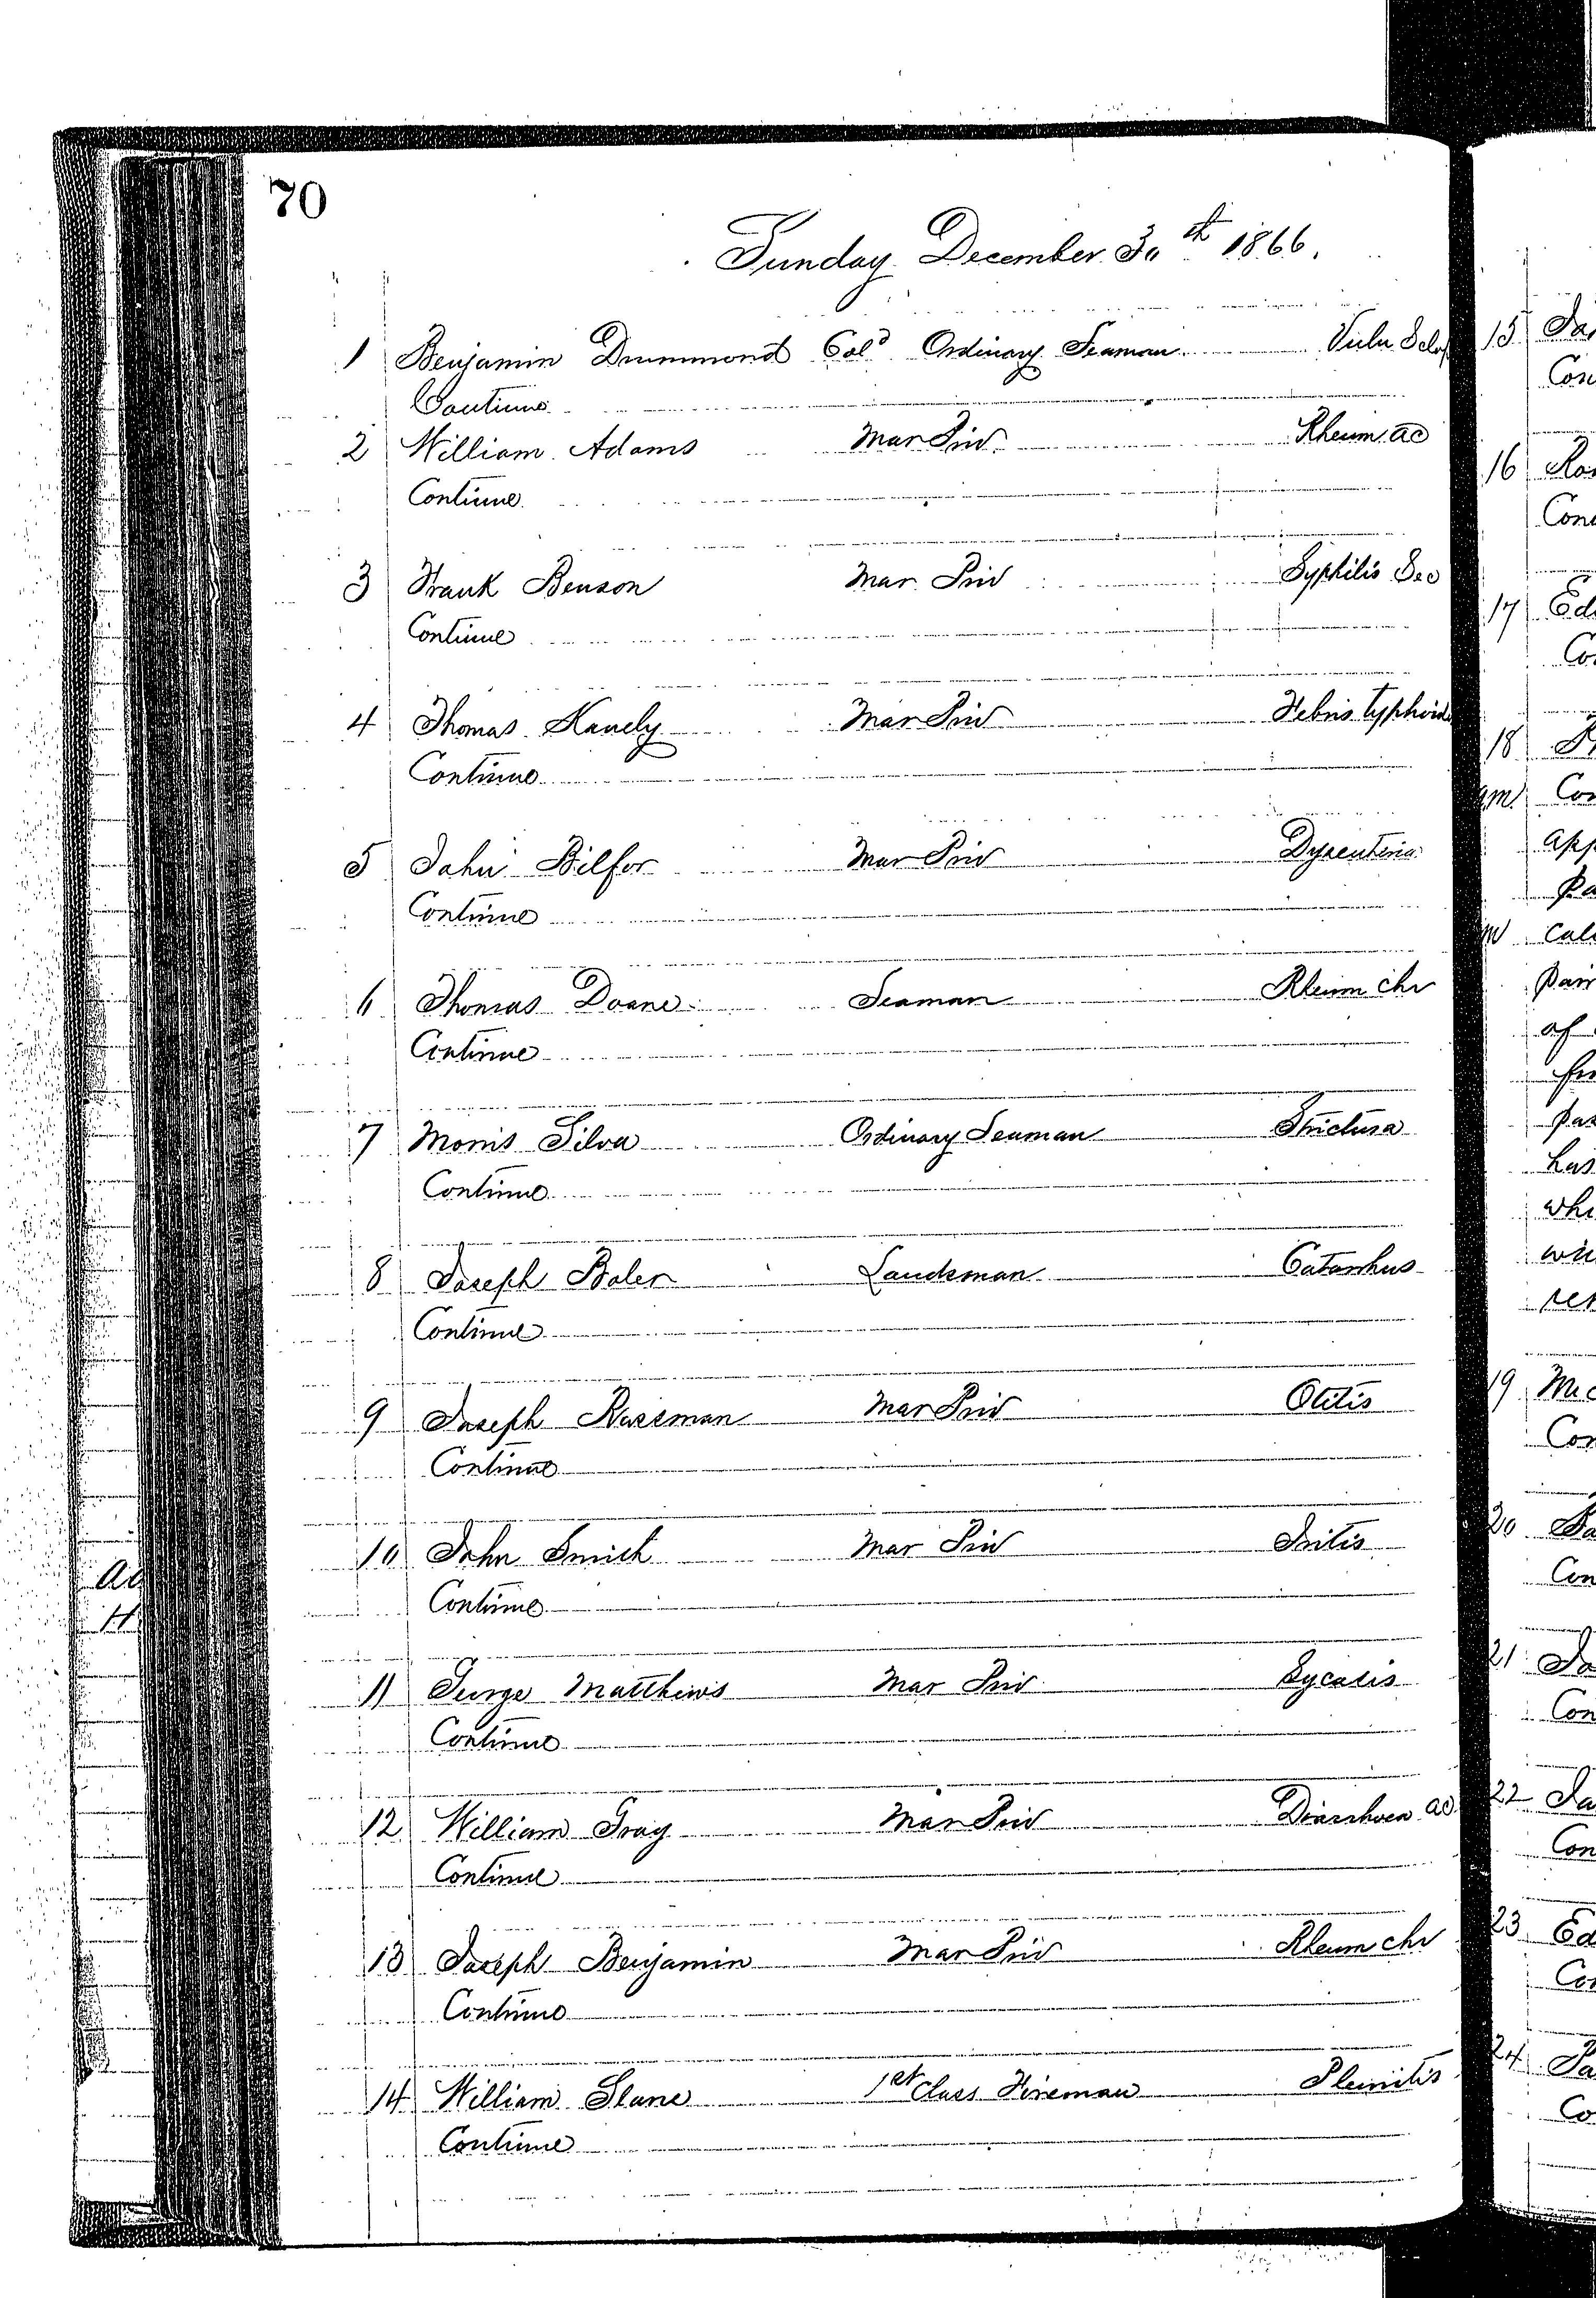 70
Sunday December 30th 1866.
1 Benjamin Drummond Cold Ordinary Seaman Vuln Sclop
Continue
2 William Adams Mar Priv Rheum ac
Continue
3 Frank Benson Mar Priv Syphilis Sec
Continue
4 Thomas Kanely Mar Priv Febris typhoid
Continue
5 John Bilfor Mar Priv Dysenteria
Continue
6 Thomas Doane Seaman Rheum chr
Continue
7 Morris Silva Ordinary Seaman Strictura
Continue
8 Joseph Boler Landsman Catarrhus
Continue
9 Joseph Rassman Mar Priv Otitis
Continue
10 John Smith Mar Priv Iritis
Continue
11 George Matthews Mar Priv Sycosis
Continue
12 William Gray Mar Priv Diarrhoea ac
Continue
13 Joseph Benjamin Mar Priv Rheum chr
Continue
14 William Slane 1st Class Fireman Pleuritis
Continue
15
16
17
18
19
20
21
22
23
24